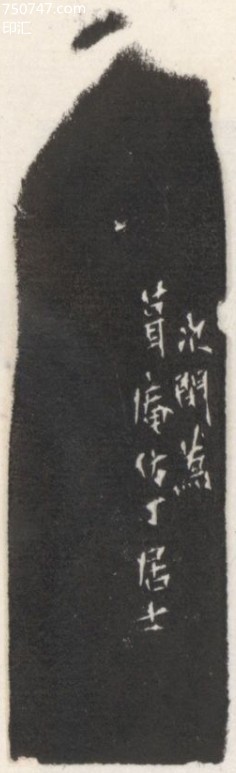 750747.com
印汇
次閑為
庵仿丁居士